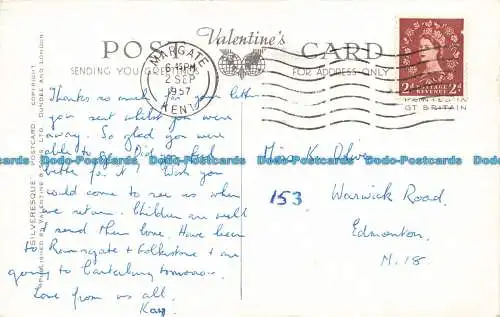 POST Valentine's CARD
SENDING YOU GREETINGS
FOR ADDRESS ONLY
MARGATE
6-45PM
2 SEP
1957
KENT
2d POSTAGE REVENUE 2d
PRINTED IN
GT BRITAIN
"SILVERESQUE" POSTCARD COPYRIGHT
PUBLISHED BY VALENTINE & SONS LTD DUNDEE AND LONDON
Thanks so much for your letter
you sent whilst you were
away. So glad you were
able to go. Did you feel
better for it? Wish you
could come to see us when
we return. Children are well
& send their love. Have been
to Ramsgate & Folkstone & are
going to Canterbury tomorrow.
Love from us all.
Kay.
Miss K.
153 Warwick Road,
Edmonton.
N.18.
Postcards-DDD Postcards-DDD Postcards-DDD Postcards-DDD Postcards-DDD